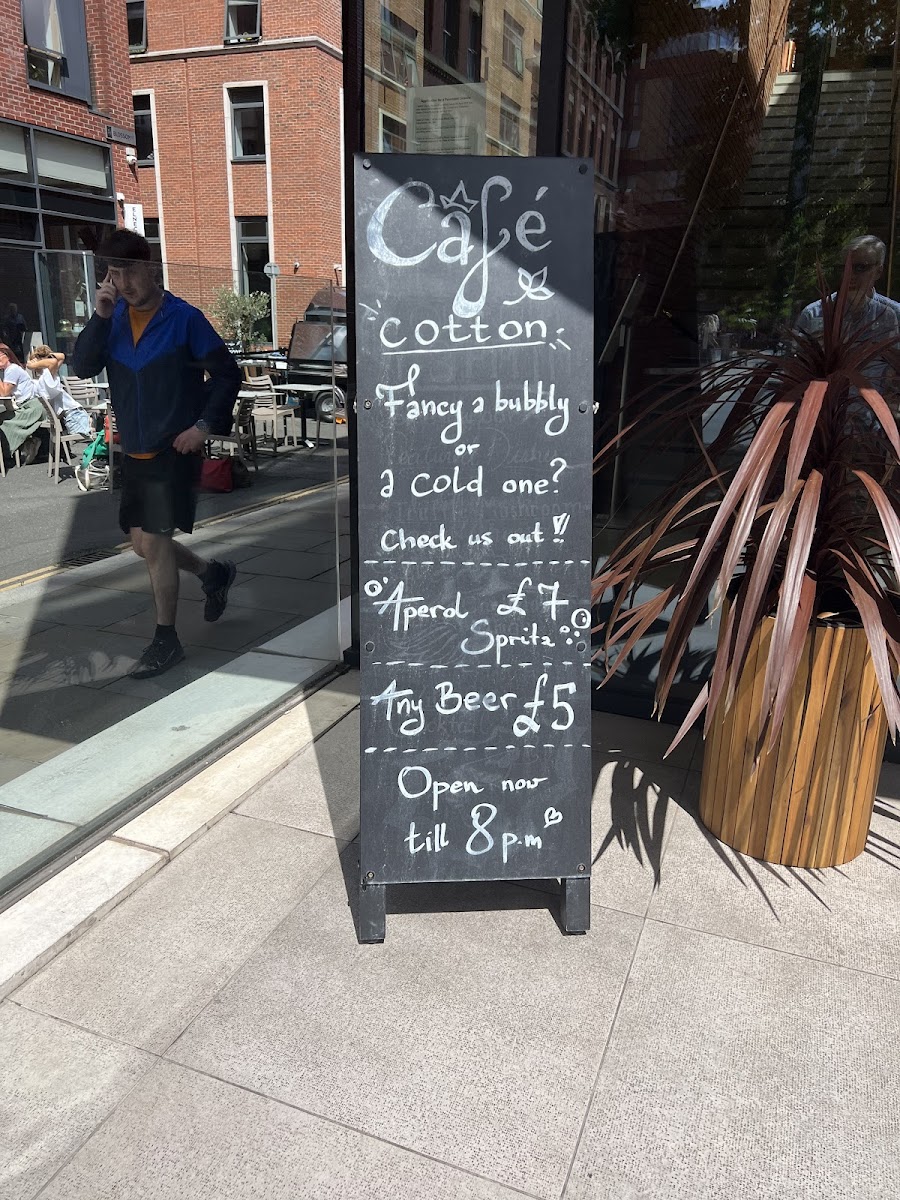 Café
cotton
Fancy a bubbly
or
a cold one?
Check us out!!
Aperol £7
Spritz
Any Beer £5
Open now
till 8 p.m